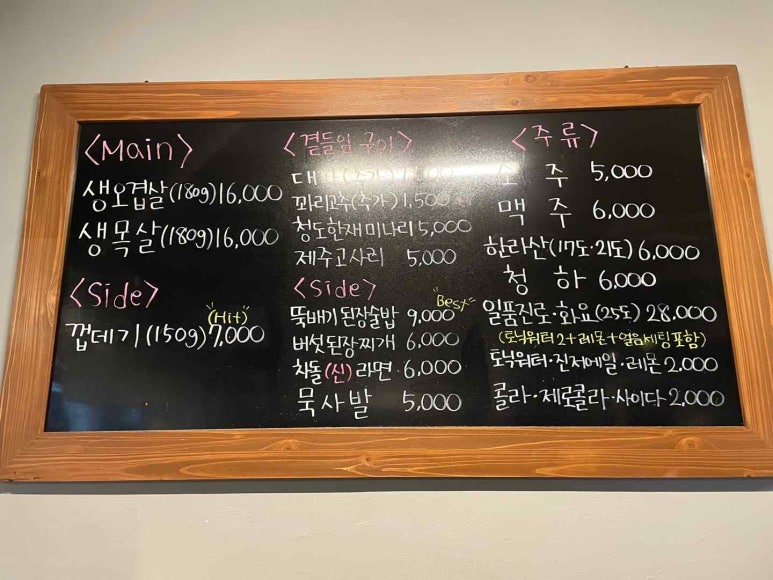 <Main>
생오겹살(180g)16,000
생목살(180g)16,000
<Side>
(Hit)
껍데기(150g)7,000
<곁들임 구이>
대파(추가)
꽈리고추(추가) 1,500
청도한재미나리 5,000
제주고사리 5,000
<Side>
Best
뚝배기 된장술밥 9,000
버섯된장찌개 6,000
차돌(신)라면 6,000
묵사발 5,000
<주류>
소주 5,000
맥주 6,000
한라산(17도·21도) 6,000
청하 6,000
일품진로·화요(25도) 28,000
(토닉워터2+레몬+얼음세팅포함)
토닉워터·진저에일·레몬 2,000
콜라·제로콜라·사이다 2,000